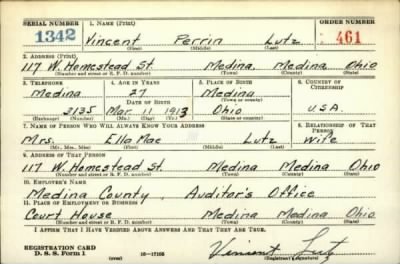 SERIAL NUMBER 1. NAME (Print) ORDER NUMBER
1342 Vincent Perrin Lutz 461
(First) (Middle) (Last)
2. ADDRESS (Print)
117 W. Homestead St. Medina, Medina Ohio
(Number and street or R. F. D. number) (Town) (County) (State)
3. TELEPHONE 4. AGE IN YEARS 5. PLACE OF BIRTH 6. COUNTRY OF CITIZENSHIP
Medina 27 Medina
DATE OF BIRTH (Town or county)
3135 Mar. 11 1913 Ohio U.S.A.
(Exchange) (Number) (Mo.) (Day) (Yr.) (State or country)
7. NAME OF PERSON WHO WILL ALWAYS KNOW YOUR ADDRESS 8. RELATIONSHIP OF THAT PERSON
Mrs. Ella Mae Lutz Wife
(Mr., Mrs., Miss) (First) (Middle) (Last)
9. ADDRESS OF THAT PERSON
117 W. Homestead St. Medina Medina Ohio
(Number and street or R. F. D. number) (Town) (County) (State)
10. EMPLOYER'S NAME
Medina County Auditor's Office
11. PLACE OF EMPLOYMENT OR BUSINESS
Court House Medina Medina Ohio
(Number and street or R. F. D. number) (Town) (County) (State)
I AFFIRM THAT I HAVE VERIFIED ABOVE ANSWERS AND THAT THEY ARE TRUE.
REGISTRATION CARD
D. S. S. Form 1 (over) 16—17105 Vincent Lutz
(Registrant's signature)